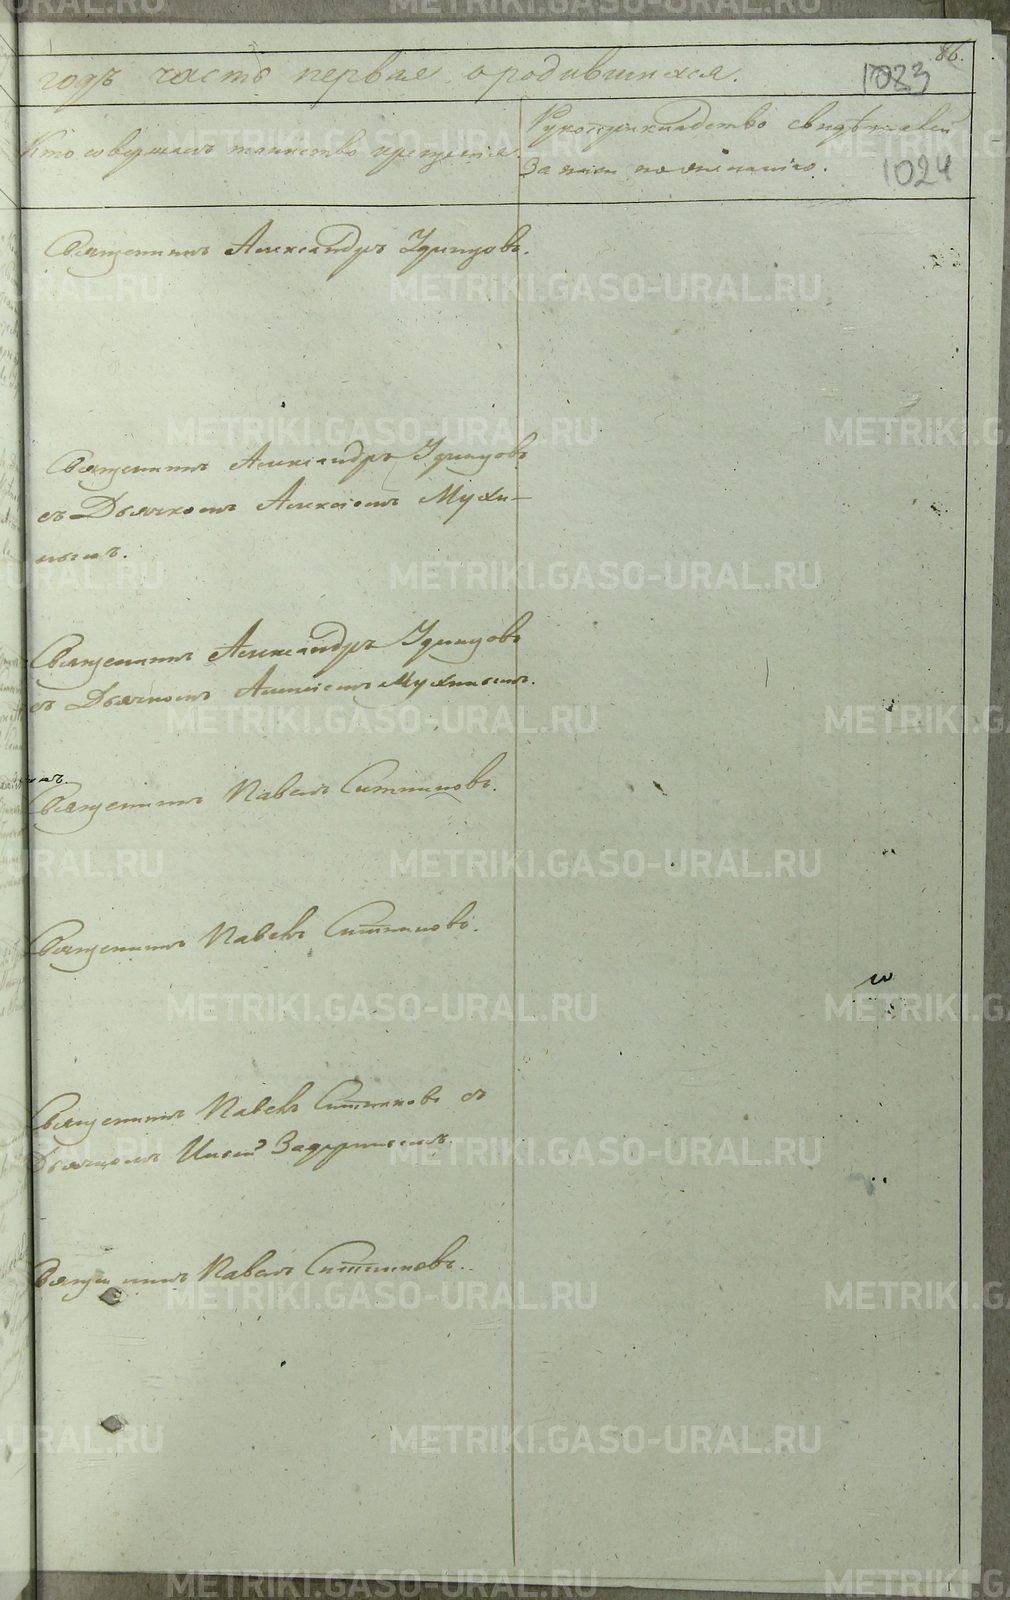 86.
годъ часть первая о родившихся.
1083
Кто совершалъ таинство крещенія.
Рукоприкладство свидѣтелей
записи по желанію.
1024
Священникъ Александръ Удинцовъ.
Священникъ Александръ Удинцовъ
съ Дьячкомъ Алексіемъ Мухи-
нымъ.
Священникъ Александръ Удинцовъ
съ Дьячкомъ Алексіемъ Мухинымъ.
Священникъ Павелъ Ситниковъ.
Священникъ Павелъ Ситниковъ.
Священникъ Павелъ Ситниковъ съ
Дьячкомъ Задоринымъ
Священникъ Павелъ Ситниковъ.
METRIKI.GASO-URAL.RU